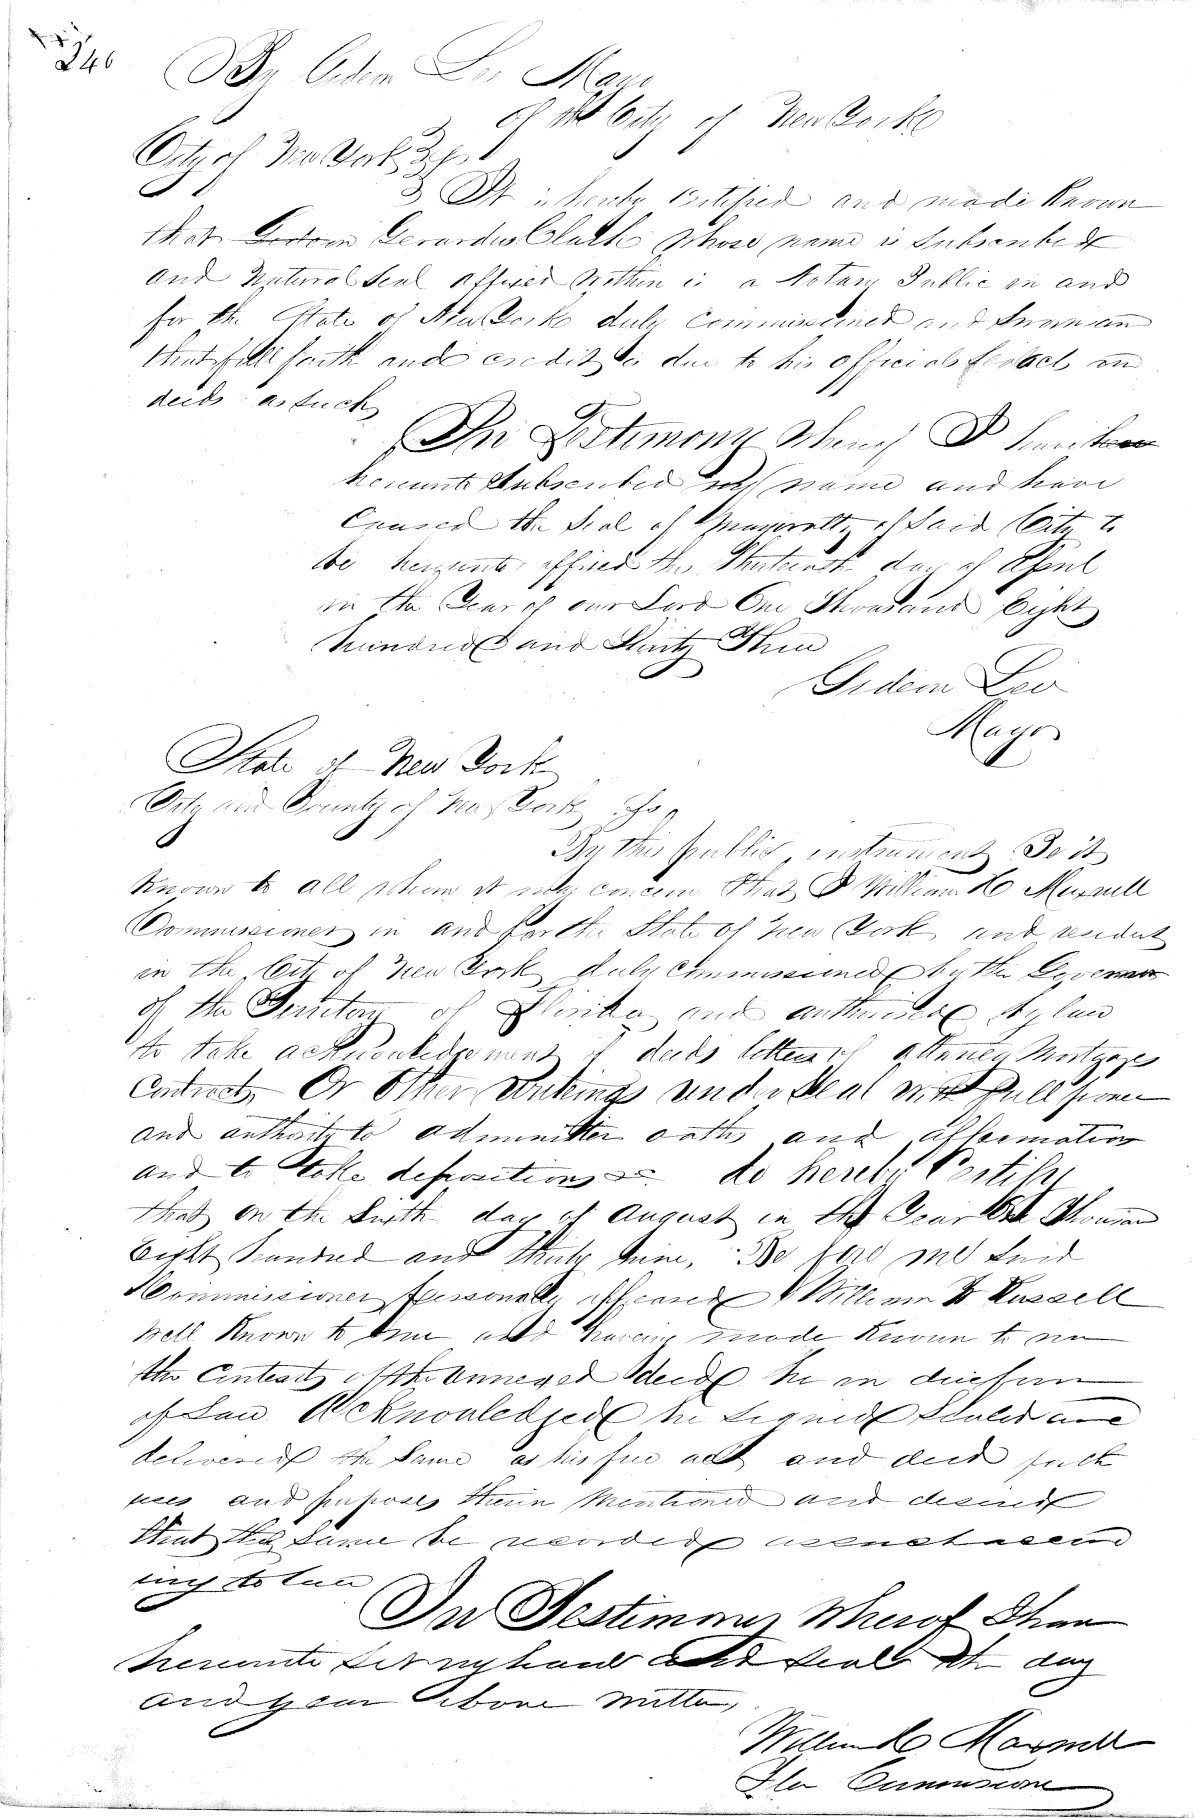 246
By Gideon Lee Mayor
of the City of New York
City of New York } ss
It is hereby certified and made Known
that Gerardus Clark whose name is Subscribed
and Notarial Seal affixed within is a Notary Public in and
for the State of New York duly Commissioned and Sworn and
that full faith and credit is due to his official acts and
deeds as such
In Testimony Whereof I have
hereunto Subscribed my name and have
Caused the Seal of Mayoralty of Said City to
be hereunto affixed the Thirteenth day of April
in the Year of our Lord One Thousand Eight
hundred and Thirty Three
Gideon Lee
Mayor
State of New York
City and County of New York Ss,
By this public instrument Be it
Known to all whom it may concern that I William H Maxwell
Commissioner in and for the State of New York and resident
in the City of New York duly commissioned by the Governor
of the Territory of Florida and authorised by law
to take acknowledgement of deeds letters of attorney Mortgages
Contracts Or Other Writings under Seal with full power
and authority to administer oaths and affirmation
and to take depositions &c do hereby Certify
that on the Sixth day of August in the Year One Thousand
Eight hundred and thirty nine, Before me Said
Commissioner personally appeared William H Russell
Well Known to me and having made Known to me
the Contents of the annexed deed he in due form
of Law Acknowledged he signed Sealed and
delivered the Same as his free act and deed for the
uses and purposes therein Mentioned and desired
that the Same be recorded as such accord
ing to law
In Testimony Whereof I have
hereunto Set my hand and seal the day
and year above written,
William H Maxwell
Flor Commissioner